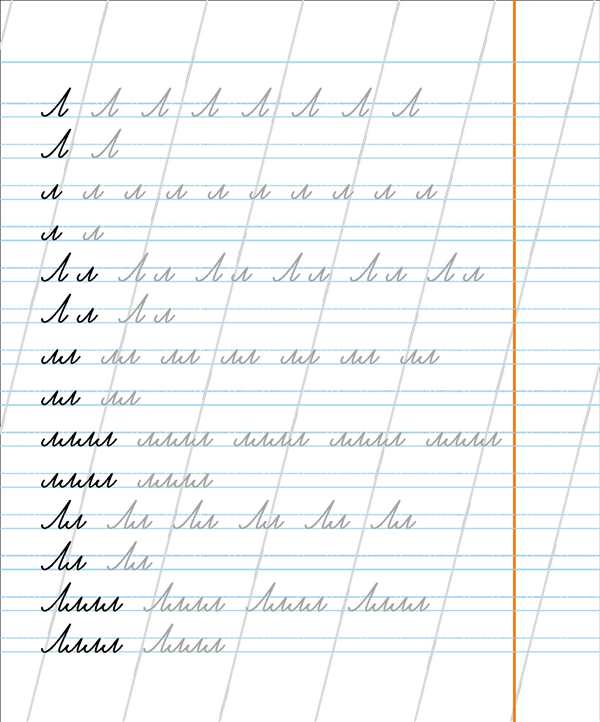 Л Л Л Л Л Л Л Л
Л Л
л л л л л л л л л л
л л
Л л Л л Л л Л л Л л Л л
Л л Л л
лл лл лл лл лл лл лл
лл лл
лллл лллл лллл лллл лллл
лллл лллл
Лл Лл Лл Лл Лл Лл
Лл Лл
Лллл Лллл Лллл Лллл
Лллл Лллл